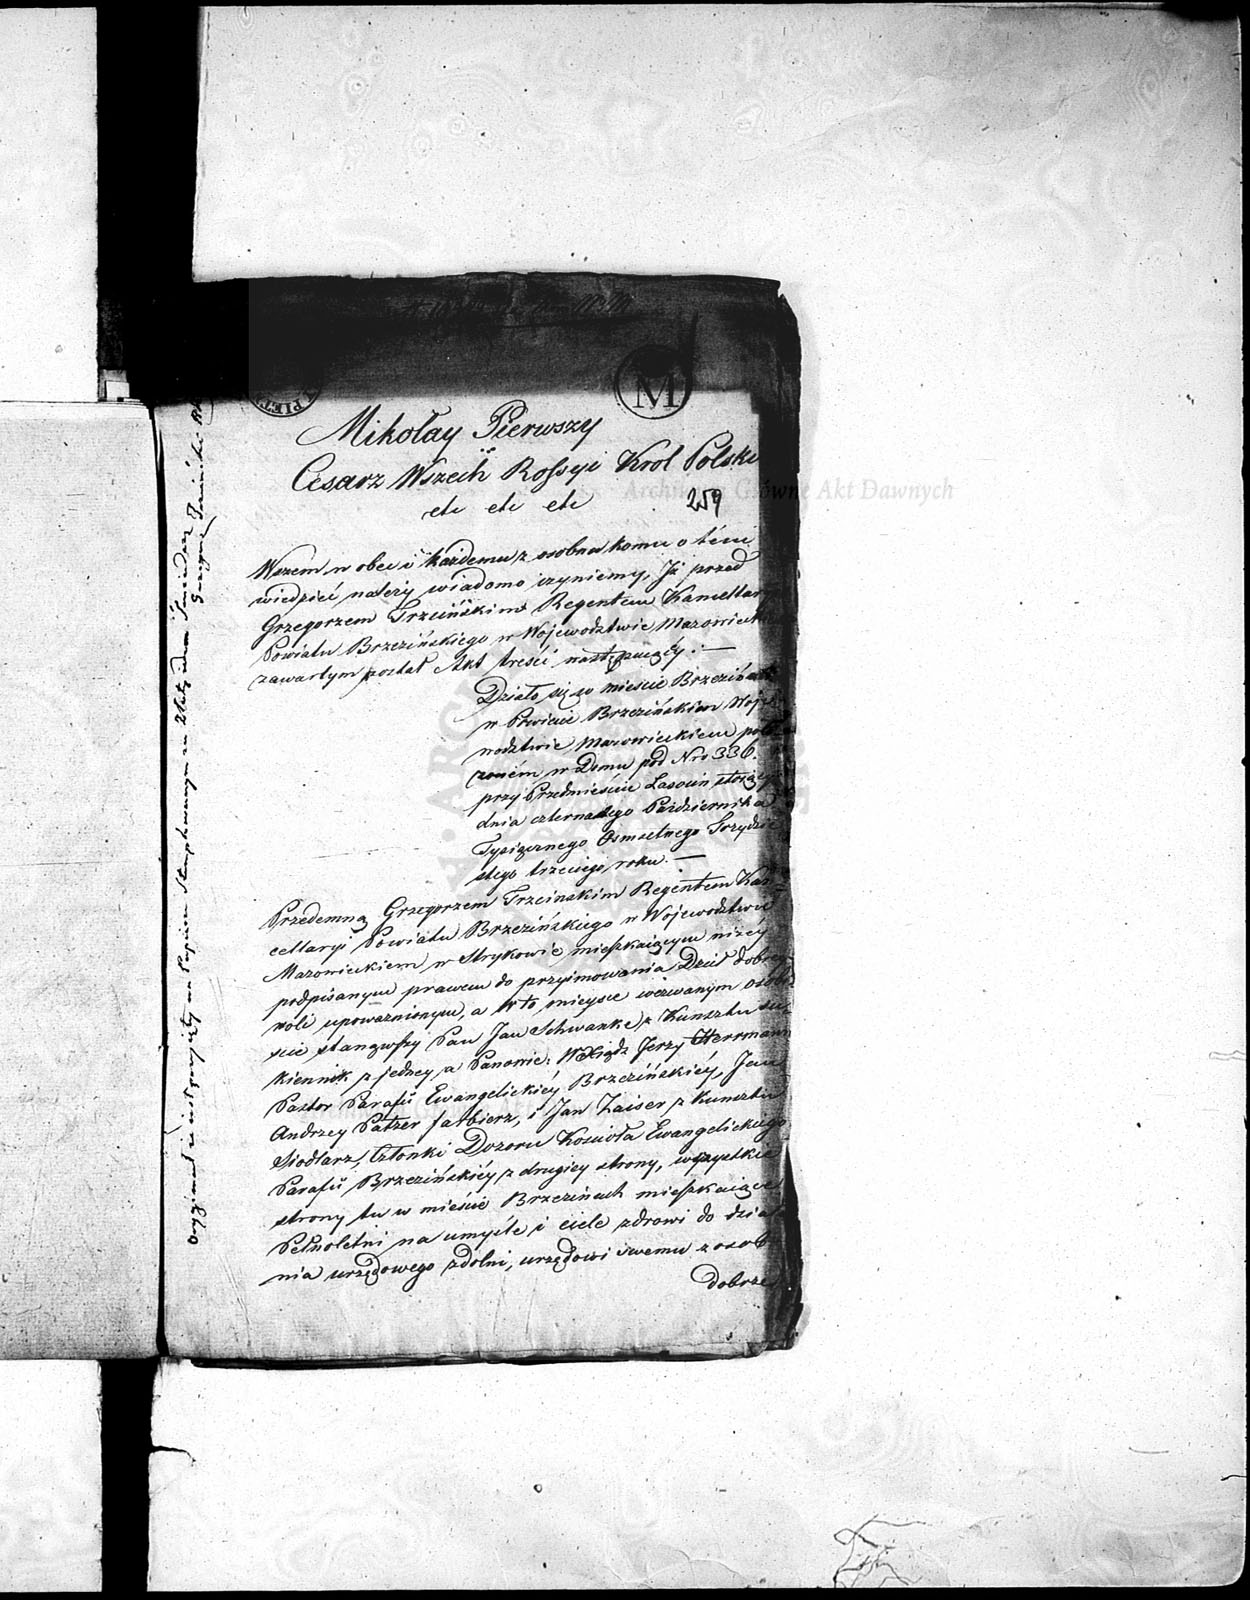 M
PIET
Mikołay Pierwszy
Cesarz Wszech Rossyi Krol Polski
etc etc etc
259
Archiwum Główne Akt Dawnych
Wszem w obec i każdemu z osobna komu o tém
wiedzieć należy wiadomo czyniemy, Iż przed
Grzegorzem Trzcińskim Regentem Kancellar
Powiatu Brzezińskiego w Województwie Mazowieck
zawartym został Akt treści następuiącéy: —
Działo się w mieście Brzezinach
w Powiecie Brzezińskim Woje
wodztwie Mazowieckiem poło
żoném w Domu pod Nro 336.
przy Przedmieściu Lasocin stoiący
dnia czternastego Października
Tysiącznego Osmsetnego Trzydzie
stego trzeciego roku. —
Przedemną Grzegorzem Trzcinskim Regentem Kan
cellaryi Powiatu Brzezińskiego w Województwie
Mazowieckiem w Strykowie mieszkaiącym niżéy
podpisanym prawem do przyimowania Dzieł dobréy
woli upoważnionym, a w to mieysce wezwanym osobi
ście stanąwszy Pan Jan Schwanke z Kunsztu su
kiennik z jednéy, a Panowie: W Xiądz Jerzy Herrmann
Pastor Parafii Ewangelickiéy Brzezińskiéy, Jan
Andrzey Patzer farbierz, i Jan Zaiser z Kunsztu
Siodlarz, Członki Dozoru Kościoła Ewangelickiego
Parafii Brzezińskiéy z drugiéy strony, wszystkie
strony tu w mieście Brzezinach mieszkaiące
Pełnoletni na umyśle i ciele zdrowi do działa
nia urzędowego zdolni, urzędowi swemu z osob
dobrze
Oryginał na Papierze Stemplowanym za Złoty jeden
Grzegorz Trzciński